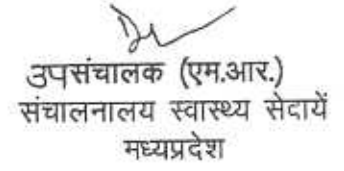 उपसंचालक (एम.आर.)
संचालनालय स्वास्थ्य सेवायें
मध्यप्रदेश